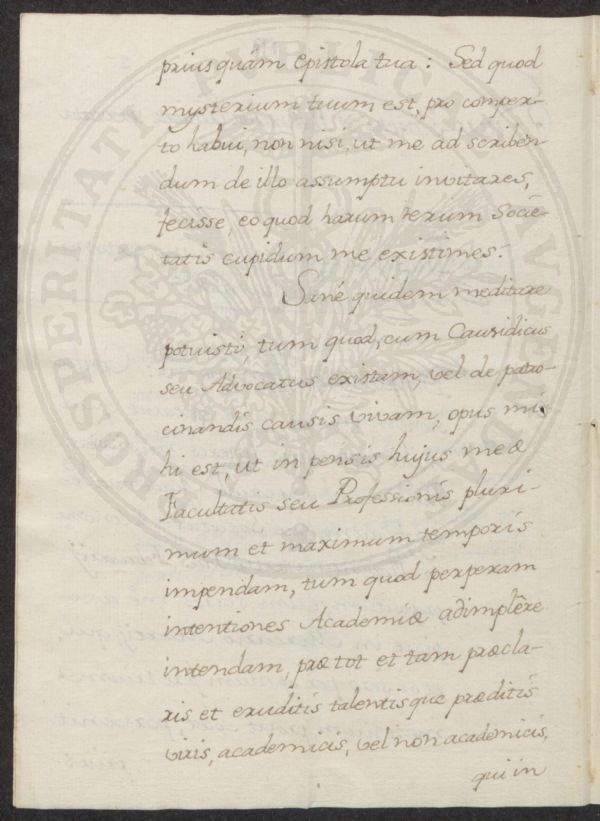 priusquám Epistola tua: Sed quod
mysterium tuum est, pro comper-
to habui, non nisi, ut me ad scriben-
dum de illo assumptu invitares,
fecisse, eo quod harum rerum Socie-
tatis cupidum me existimes.
Sané quidem meditare
potuisti tum quod, cum Causidicus
seu Advocatus existam, vel de patro-
cinandis causis vivam, opus mi-
hi est, ut in pensis hujus meæ
Facultatis seu Professionis pluri-
mum et maximum temporis
impendam, tum quod perperam
intentiones Academiæ adimplêre
intendam, præ tot et tam præcla-
ris et eruditis talentisque præditis
viris, academicis, vel non academicis,
qui in
PROSPERITATI PUBLICAE AUGENDAE